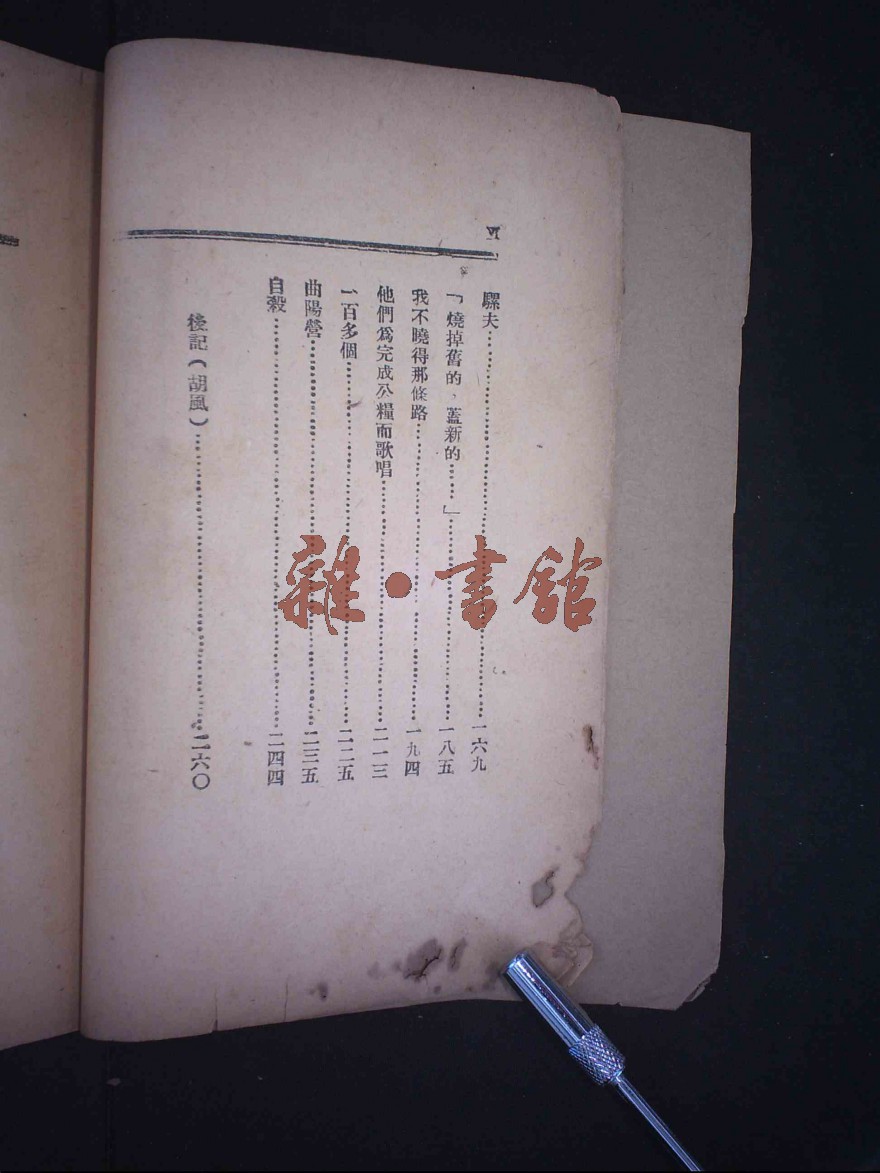 VI
騾夫……一六九
「燒掉舊的，蓋新的……」……一八五
我不曉得那條路……一九四
他們爲完成公糧而歌唱……二一三
二百多個……二二五
曲陽營……二三五
自殺……二四四
後記（胡風）……二六〇
雜·書館